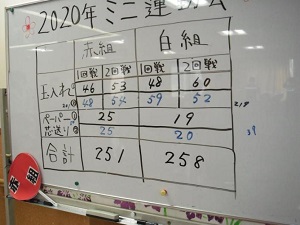 2020年 ミニ運
赤組 白組
1回戦 2回戦 1回戦 2回戦
玉入れ 46 53 48 60
48 54 59 52
ペーパー① 25 19
芯送り② 25 20
合計 251 258
赤組